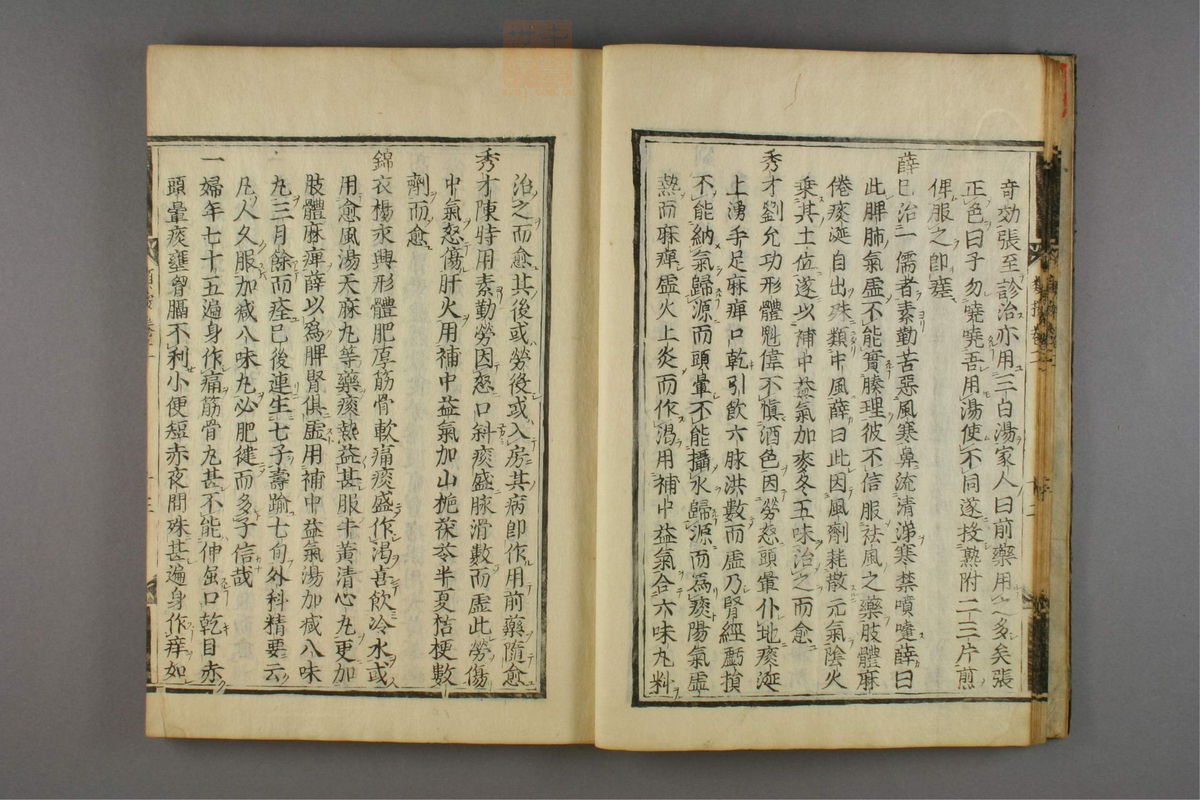 奇効張至診治亦用三白湯家人曰前藥用之多矣張
正色曰子勿嘵嘵吾用湯使不同遂投熟附二三片煎
俾服之即瘥
薛已治一儒者素勤苦惡風寒鼻流清涕寒禁噴嚏薛曰
此脾肺氣虛不能實腠理彼不信服祛風之藥肢體麻
倦痰涎自出殊類中風薛曰此因風劑耗散元氣陰火
乘其土位遂以補中益氣加麥冬五味治之而愈
秀才劉允功形體魁偉不慎酒色因勞怒頭暈仆地痰涎
上湧手足麻痺口乾引飲六脉洪數而虛乃腎經虧損
不能納氣歸源而頭暈不能攝水歸源而爲痰陽氣虛
熱而麻痺虛火上炎而作渴用補中益氣合六味丸料
治之而愈其後或勞役或入房其病即作用前藥隨愈
秀才陳時用素勤勞因怒口斜痰盛脉滑數而虛此勞傷
中氣怒傷肝火用補中益氣加山梔茯苓半夏桔梗數
劑而愈
錦衣楊永興形體肥厚筋骨軟痛痰盛作渴喜飲冷水或
用愈風湯天麻丸等藥痰熱益甚服牛黃清心丸更加
肢體麻痺薛以爲脾腎俱虛用補中益氣湯加減八味
丸三月餘而痊已後連生七子壽踰七旬外科精要云
凡人久服加減八味丸必肥健而多子信哉
一婦年七十五遍身作痛筋骨尤甚不能伸屈口乾目赤
頭暈痰壅胷膈不利小便短赤夜間殊甚遍身作痒如